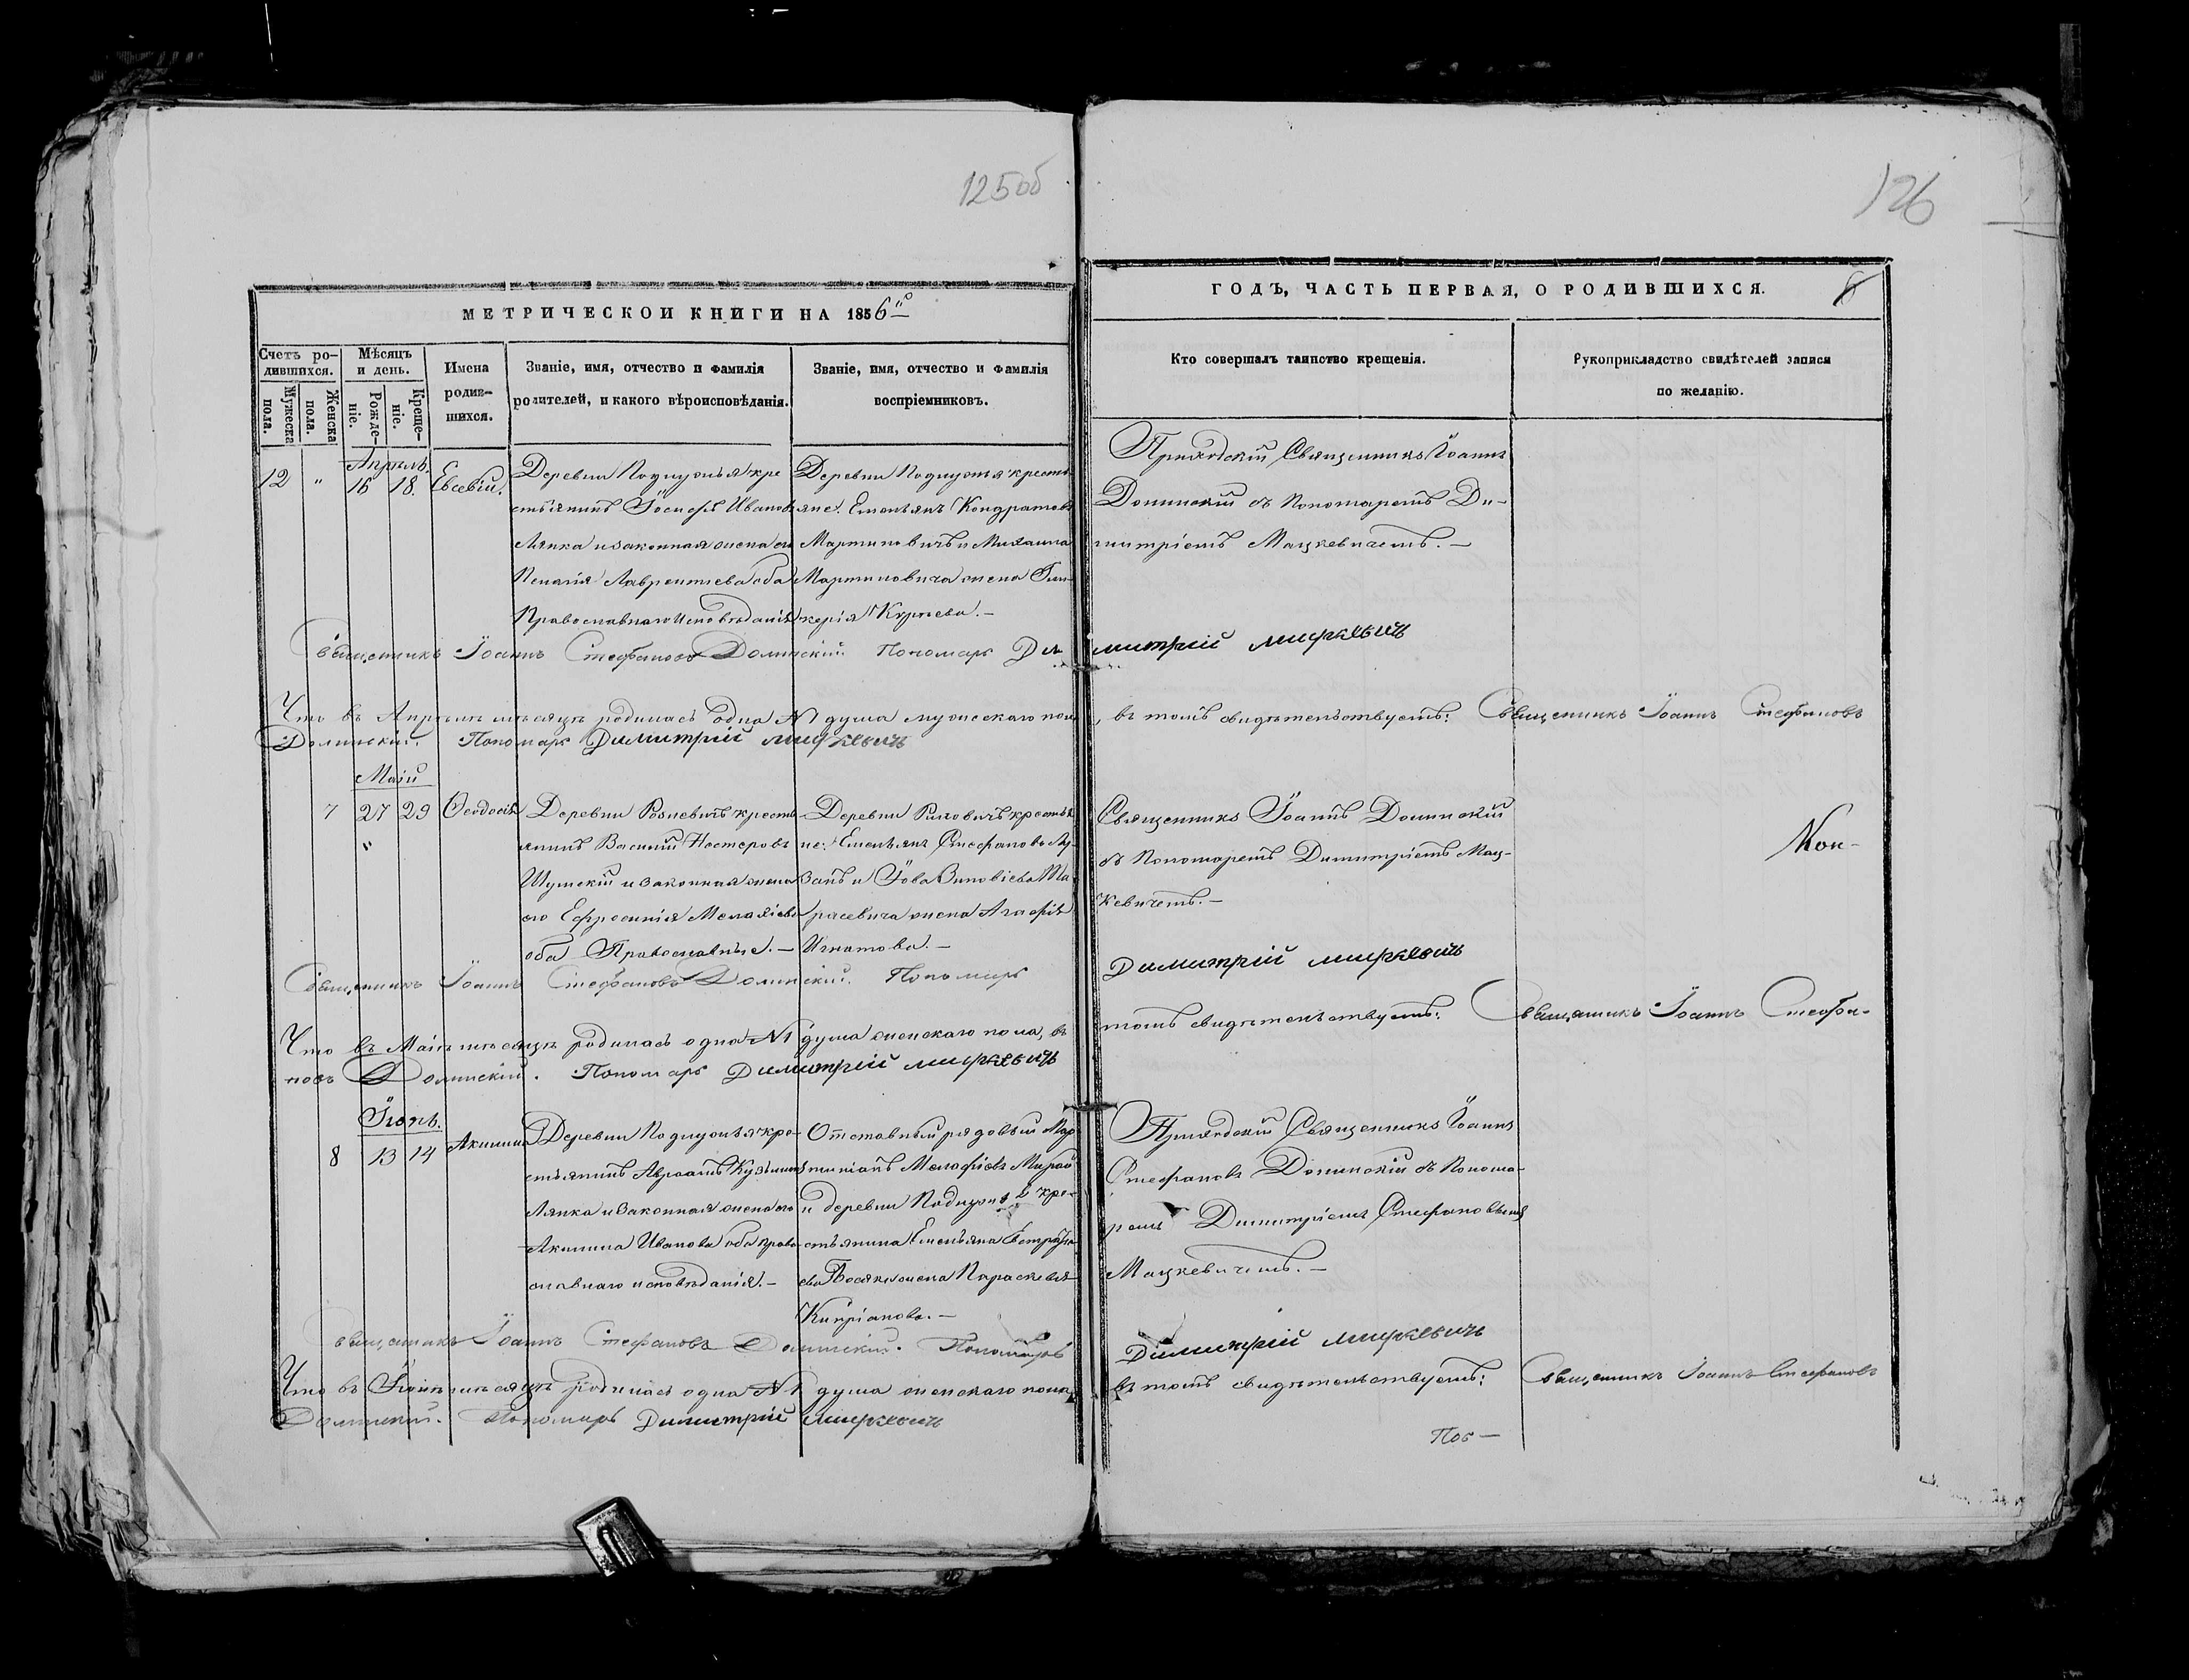 125об
126
МЕТРИЧЕСКОЙ КНИГИ НА 1856
ГОДЪ, ЧАСТЬ ПЕРВАЯ, О РОДИВШИХСЯ.
Счетъ ро-
дившихся.
Мужеска
пола.
Женска
пола.
Мѣсяцъ
и день.
Рожде-
ніе.
Креще-
ніе.
Имена
родив-
шихся.
Званіе, имя, отчество и фамилія
родителей, и какого вѣроисповѣданія.
Званіе, имя, отчество и фамилія
воспріемниковъ.
Кто совершалъ таинство крещенія.
Рукоприкладство свидѣтелей записи
по желанію.
Апрѣль.
12 " 16 18. Евсевій.
Деревни Поднужья кре
стьянинъ Іосифъ Ивановъ
Лянка и законная жена его
Пелагія Лаврентіева оба
Православнаго исповѣданія
Деревни Поднужья кресть
яне: Емельянъ Кондратовъ
Мартиновичъ и Михаила
Мартиновича жена Гли-
керія Кирѣева. —
Приходскій Священникъ Іоаннъ
Долинскій съ Пономаремъ Ди-
митріемъ Мацкевичемъ. —
Священникъ Іоаннъ Стефановъ Долинскій. Пономарь Димитрій Мацкевичъ
Что въ Апрѣлѣ мѣсяцѣ родилась одна №1 душа мужескаго пола, въ томъ свидѣтельствуетъ: Священникъ Іоаннъ Стефановъ
Долинскій. Пономарь Димитрій Мацкевичъ
Маій
7 27 29 Ѳеодосія
"
Деревни кресть
янинъ Василій Нестеровъ
Шумскій и законная жена
его Ефросинія
оба Православные. —
Деревни крестья
не: Емельянъ Стефановъ
и Іова Зиновіева Та
расевича жена Агафія
Игнатова. —
Священникъ Іоаннъ Долинскій
съ Пономаремъ Димитріемъ Мац-
кевичемъ. —
Священникъ Іоаннъ Стефановъ Долинскій. Пономарь Димитрій Мацкевичъ
Что въ Маіѣ мѣсяцѣ родилась одна №1 душа женскаго пола, въ томъ свидѣтельствуетъ: Священникъ Іоаннъ Стефа-
новъ Долинскій. Пономарь Димитрій Мацкевичъ
Іюнь.
8 13 14 Акилина
Деревни Поднужья кре-
стьянинъ Авраамъ Кузьминъ
Лянка и законная жена его
Акилина Иванова оба право-
славнаго исповѣданія. —
Отставный рядовый Мар
тиніанъ
и деревни Поднужья кре-
стьянина Емельяна
жена Параскевія
Кипріанова. —
Приходскій Священникъ Іоаннъ
Стефановъ Долинскій съ Понома-
ремъ Димитріемъ Стефановымъ
Мацкевичемъ. —
Священникъ Іоаннъ Стефановъ Долинскій. Пономарь Димитрій Мацкевичъ
Что въ Іюнѣ мѣсяцѣ родилась одна №1 душа женскаго пола въ томъ свидѣтельствуетъ: Священникъ Іоаннъ Стефановъ
Долинскій. Пономарь Димитрій Мацкевичъ